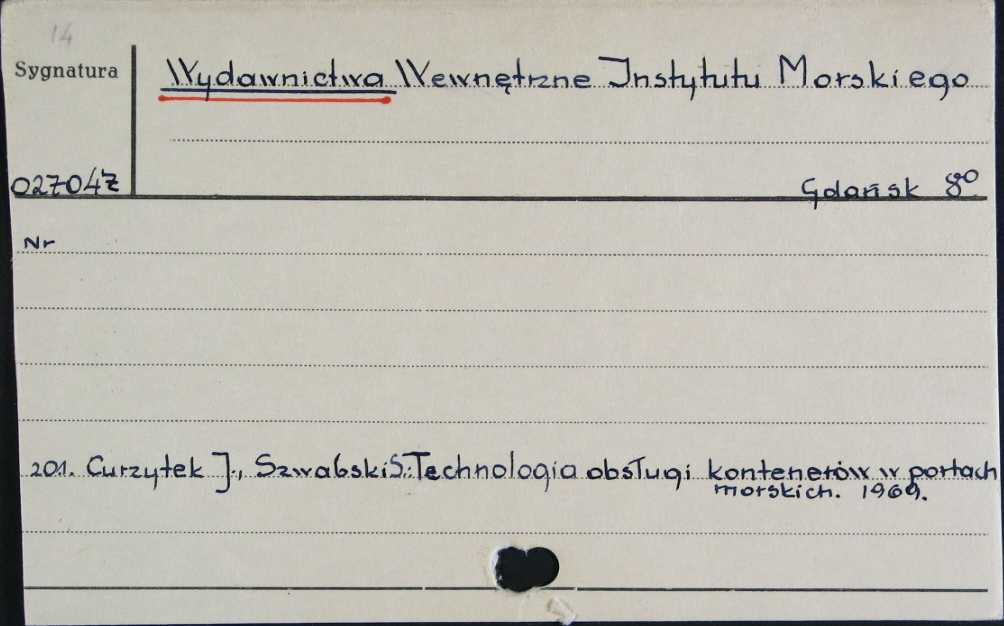 14
Sygnatura
Wydawnictwa Wewnętrzne Instytutu Morskiego
02704Z
Gdańsk 8°
Nr
201. Curzytek J., Szwabski S.: Technologia obsługi kontenerów w portach
morskich. 1969.